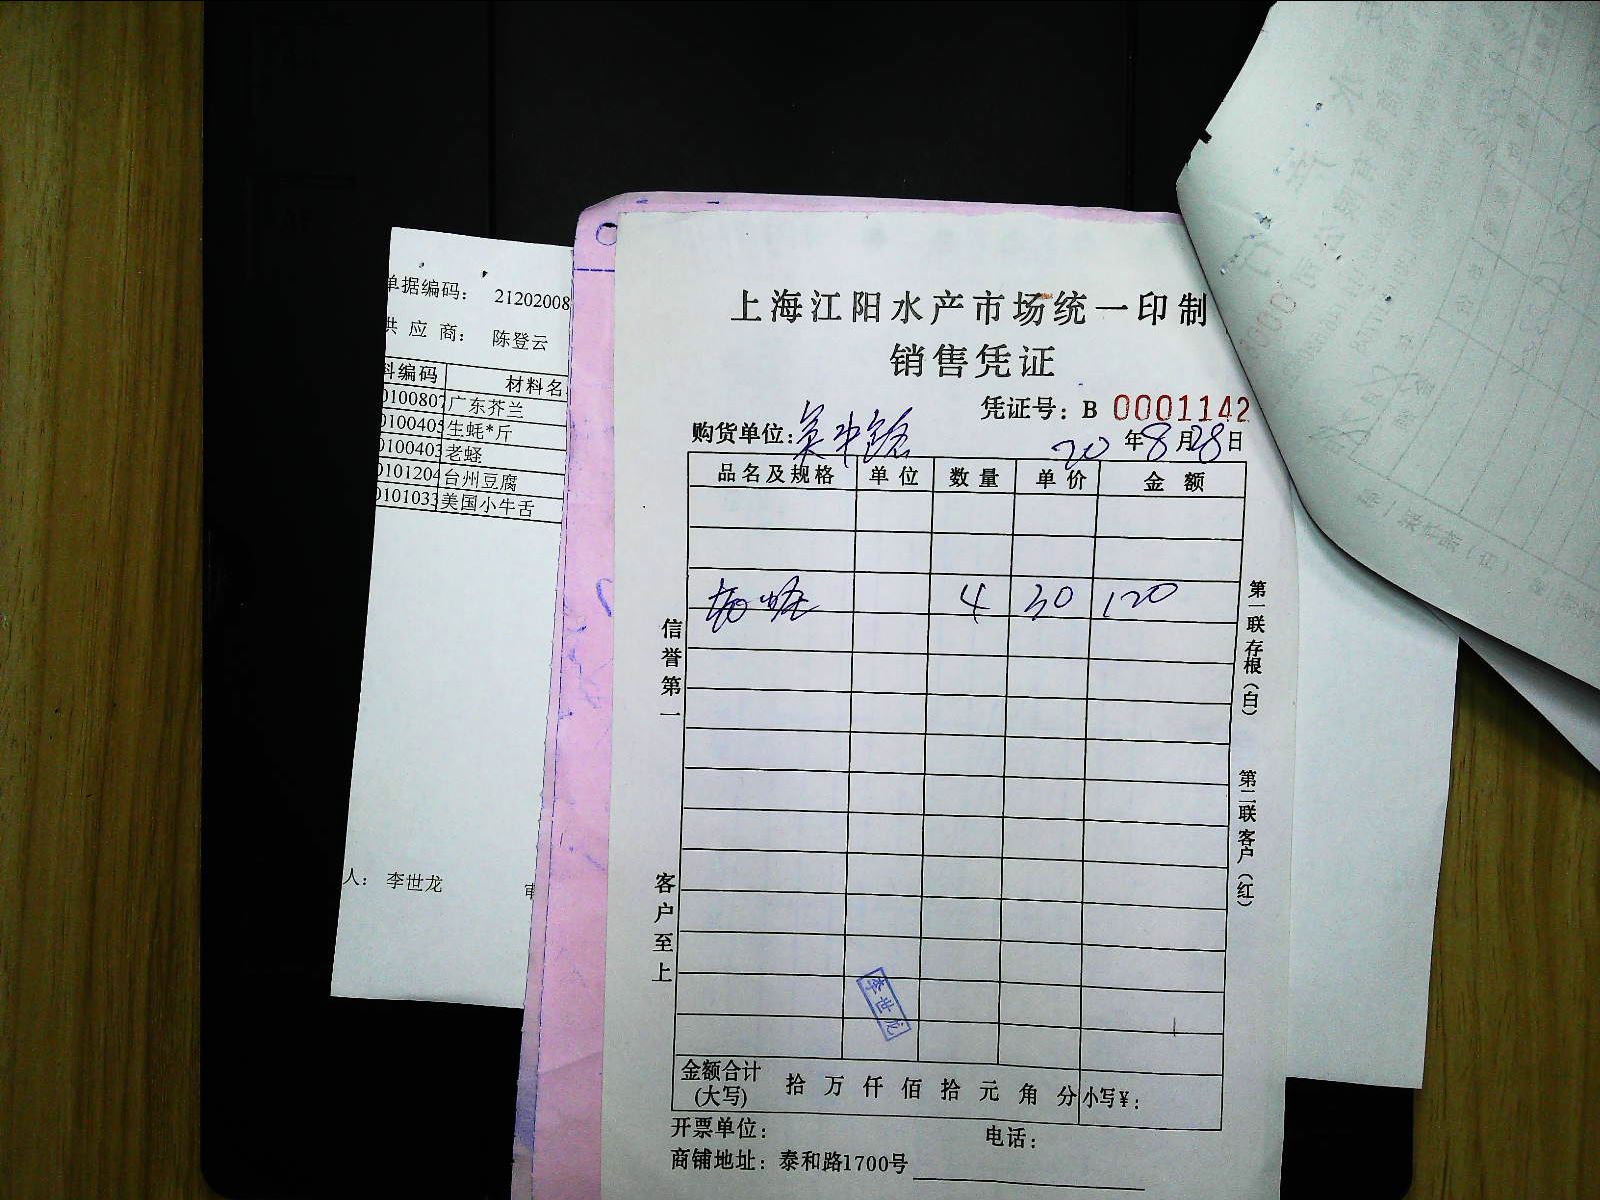 单据编码： 21202008
供 应 商： 陈登云
料编码 材料名
0100807 广东芥兰
0100405 生蚝*斤
0100403 老蛏
0101204 台州豆腐
0101033 美国小牛舌
人： 李世龙
上海江阳水产市场统一印制
销售凭证
凭证号：B 0001142
购货单位：
20 年 8 月 28 日
品名及规格 单位 数量 单价 金额
4 30 120
信誉第一
客户至上
第一联存根（白）
第二联客户（红）
李世龙
金额合计(大写) 拾 万 仟 佰 拾 元 角 分 小写¥：
开票单位： 电话：
商铺地址：泰和路1700号